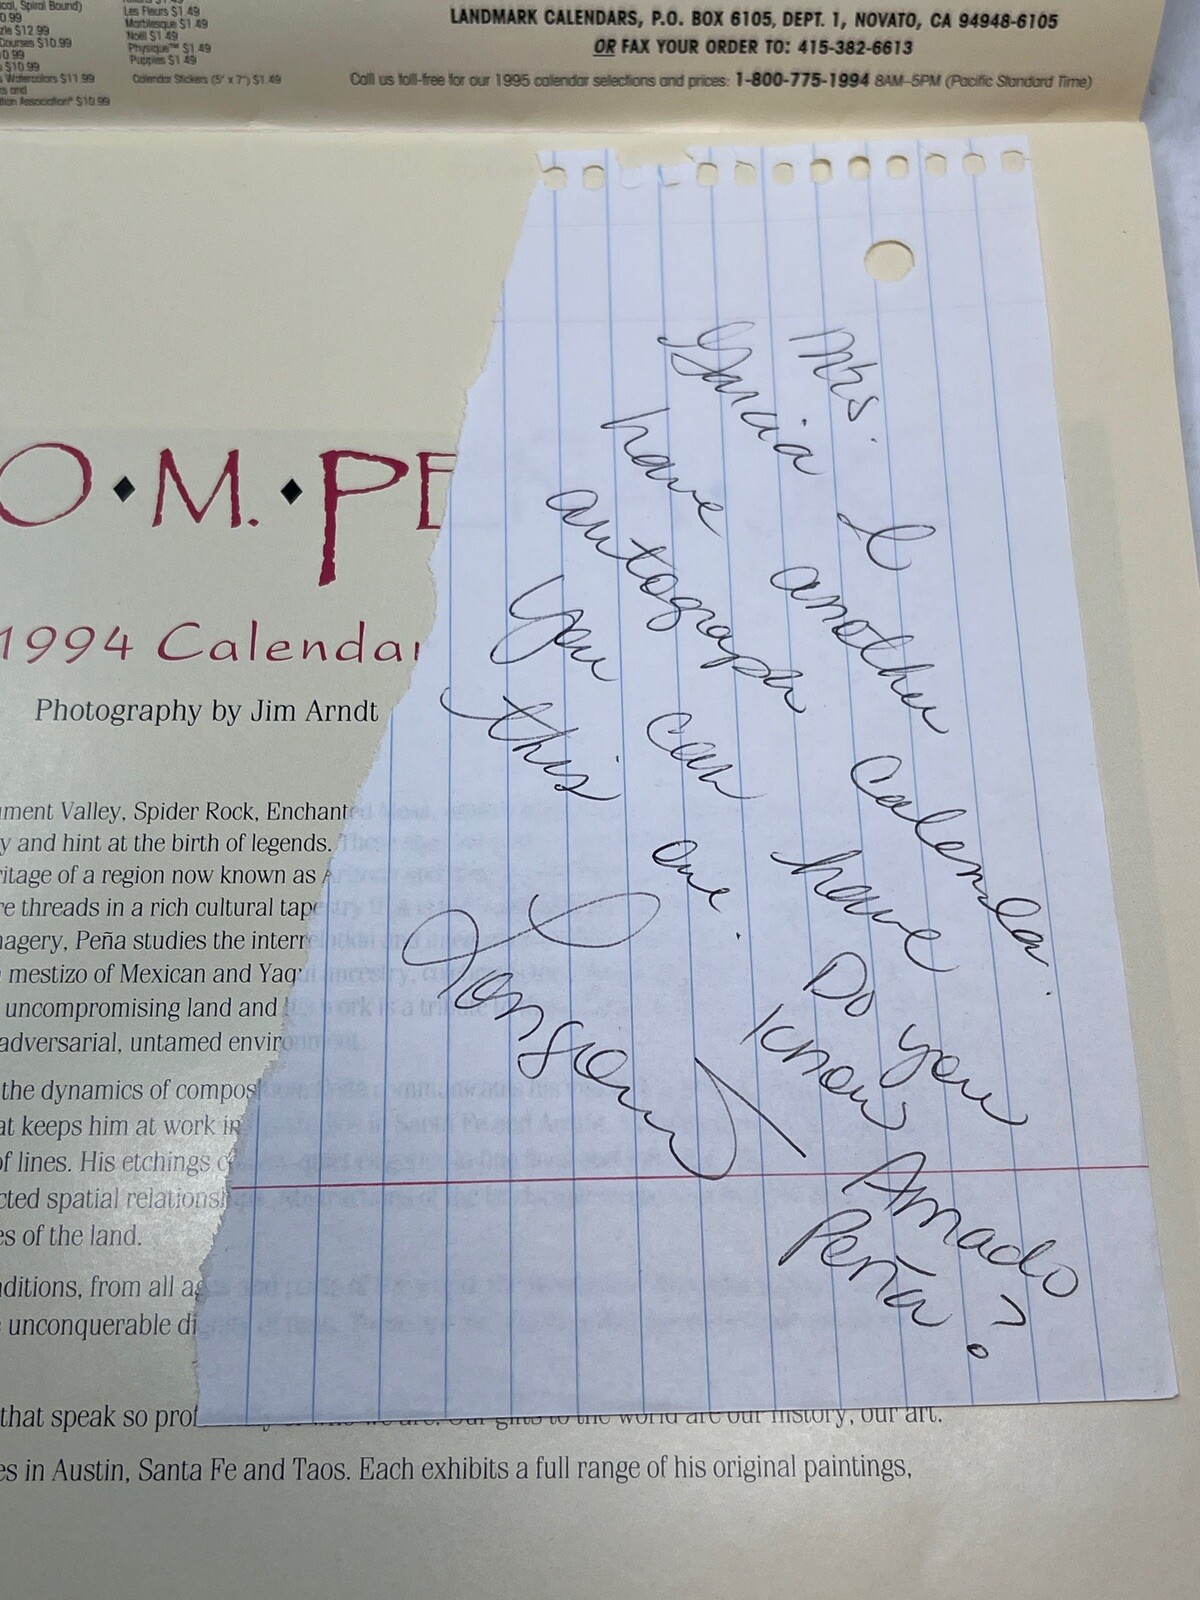 ical, Spiral Bound)
0.99
zle $12.99
Courses $10.99
0.99
s $10.99
s Watercolors $11.99
ms and
tion Association® $10.99
Les Fleurs $1.49
Marblesque $1.49
Noël $1.49
Physique™ $1.49
Puppies $1.49
Calendar Stickers (5" x 7") $1.49
LANDMARK CALENDARS, P.O. BOX 6105, DEPT. 1, NOVATO, CA 94948-6105
OR FAX YOUR ORDER TO: 415-382-6613
Call us toll-free for our 1995 calendar selections and prices: 1-800-775-1994 8AM–5PM (Pacific Standard Time)
Mrs.
Garcia I
have another
autograph Calenda.
You can have
this one. Do you
know Amado
Peña?
O♦M.♦PE
1994 Calendar
Photography by Jim Arndt
ument Valley, Spider Rock, Enchanted
y and hint at the birth of legends.
ritage of a region now known as A
re threads in a rich cultural tape
nagery, Peña studies the interr
mestizo of Mexican and Yaqui
uncompromising land and
adversarial, untamed environ
the dynamics of composi
at keeps him at work in
of lines. His etchings
cted spatial relationsh
es of the land.
ditions, from all ag
unconquerable di
that speak so prof our gifts to the world are our history, our art.
es in Austin, Santa Fe and Taos. Each exhibits a full range of his original paintings,